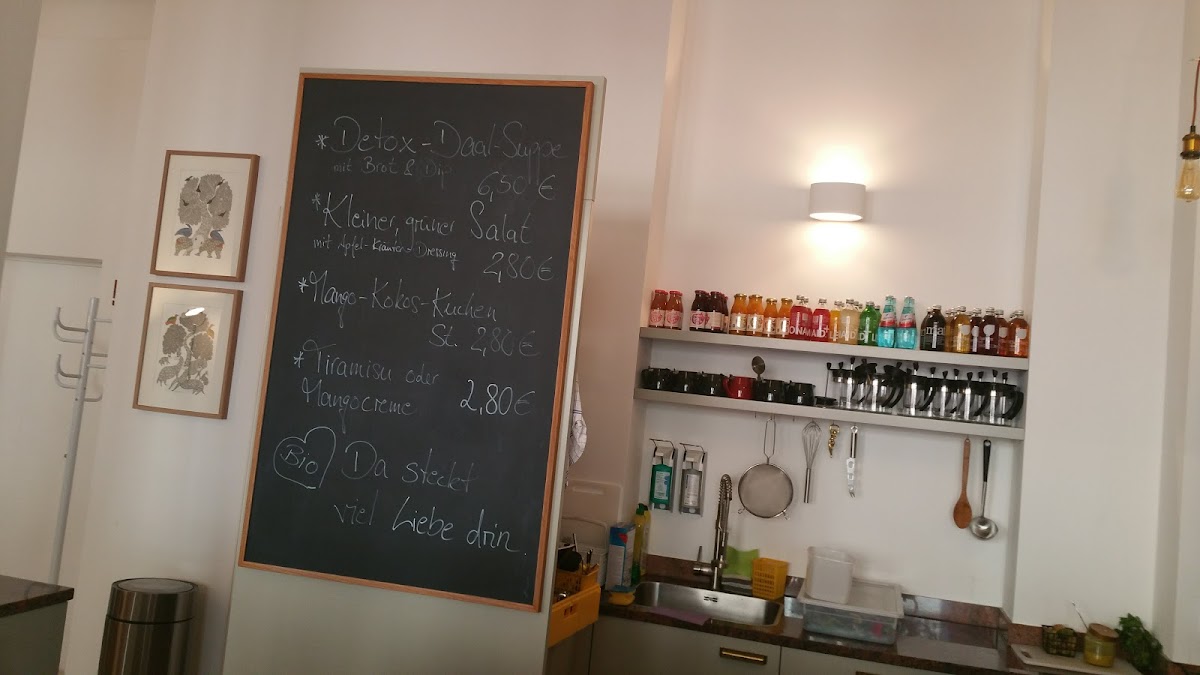 *Detox-Daal-Suppe
mit Brot & Dip
6,50 €
*Kleiner, grüner Salat
mit Apfel-Kräuter-Dressing
2,80€
*Mango-Kokos-Kuchen
St. 2,80€
*Tiramisu oder
Mangocreme 2,80€
Bio Da steckt
viel Liebe drin.